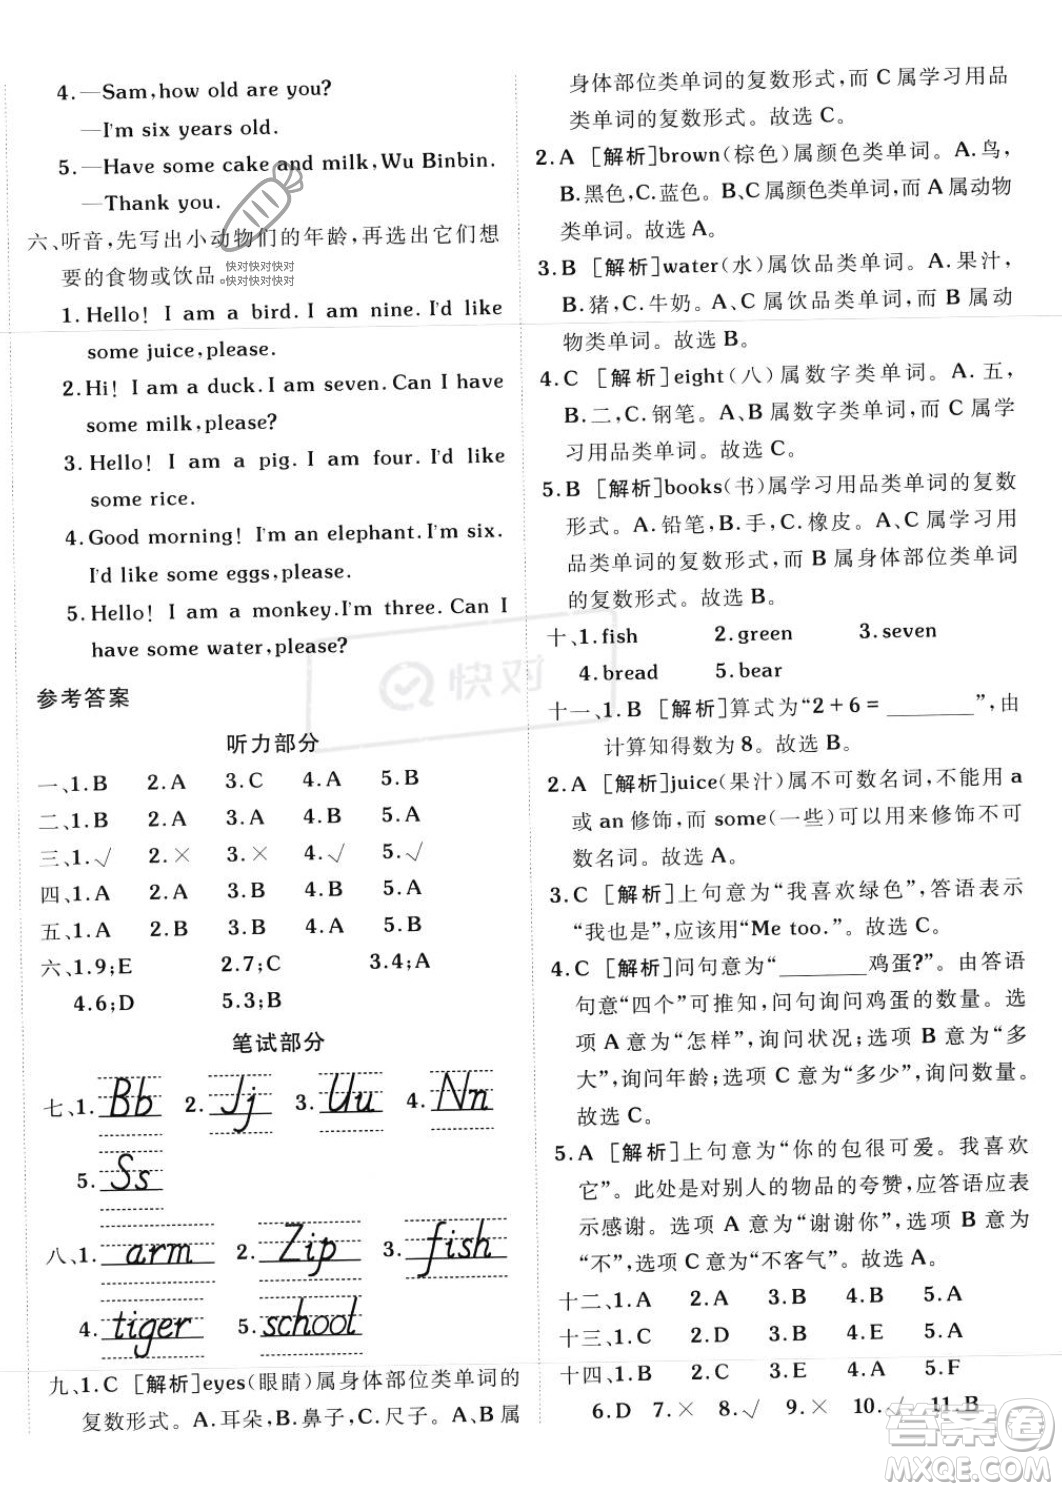 4.—Sam,how old are you?
—I'm six years old.
5.—Have some cake and milk,Wu Binbin.
—Thank you.
六、听音,先写出小动物们的年龄,再选出它们想
要的食物或饮品。
快对快对快对
快对快对快对
1.Hello! I am a bird. I am nine. I'd like
some juice,please.
2.Hi! I am a duck. I am seven. Can I have
some milk,please?
3.Hello! I am a pig. I am four. I'd like
some rice.
4.Good morning! I'm an elephant. I'm six.
I'd like some eggs,please.
5.Hello! I am a monkey.I'm three. Can I
have some water,please?
快对
参考答案
听力部分
一、1.B 2.A 3.C 4.A 5.B
二、1.B 2.A 3.A 4.B 5.A
三、1.√ 2.× 3.× 4.√ 5.√
四、1.A 2.A 3.B 4.B 5.A
五、1.A 2.B 3.B 4.A 5.B
六、1.9;E 2.7;C 3.4;A
4.6;D 5.3;B
笔试部分
七、1. Bb 2. Jj 3. Uu 4. Nn
5. Ss
八、1. arm 2. Zip 3. fish
4. tiger 5. school
九、1.C [解析]eyes(眼睛)属身体部位类单词的
复数形式。A.耳朵,B.鼻子,C.尺子。A、B 属
身体部位类单词的复数形式,而 C 属学习用品
类单词的复数形式。故选 C。
2.A [解析]brown(棕色)属颜色类单词。A.鸟,
B.黑色,C.蓝色。B、C 属颜色类单词,而 A 属动物
类单词。故选 A。
3.B [解析]water(水)属饮品类单词。A.果汁,
B.猪,C.牛奶。A、C 属饮品类单词,而 B 属动
物类单词。故选 B。
4.C [解析]eight(八)属数字类单词。A.五,
B.二,C.钢笔。A、B 属数字类单词,而 C 属学
习用品类单词。故选 C。
5.B [解析]books(书)属学习用品类单词的复数
形式。A.铅笔,B.手,C.橡皮。A、C 属学习用
品类单词的复数形式,而 B 属身体部位类单词
的复数形式。故选 B。
十、1.fish 2.green 3.seven
4.bread 5.bear
十一、1.B [解析]算式为“2+6=________”,由
计算知得数为 8。故选 B。
2.A [解析]juice(果汁)属不可数名词,不能用 a
或 an 修饰,而 some(一些)可以用来修饰不可
数名词。故选 A。
3.C [解析]上句意为“我喜欢绿色”,答语表示
“我也是”,应该用“Me too.”。故选 C。
4.C [解析]问句意为“________鸡蛋?”。由答语
句意“四个”可推知,问句询问鸡蛋的数量。选
项 A 意为“怎样”,询问状况;选项 B 意为“多
大”,询问年龄;选项 C 意为“多少”,询问数量。
故选 C。
5.A [解析]上句意为“你的包很可爱。我喜欢
它”。此处是对别人的物品的夸赞,应答语应表
示感谢。选项 A 意为“谢谢你”,选项 B 意为
“不”,选项 C 意为“不客气”。故选 A。
十二、1.A 2.A 3.B 4.B 5.A
十三、1.C 2.D 3.B 4.E 5.A
十四、1.C 2.E 3.B 4.A 5.F
6.D 7.× 8.√ 9.× 10.√ 11.B
答案卷
MXQE.COM